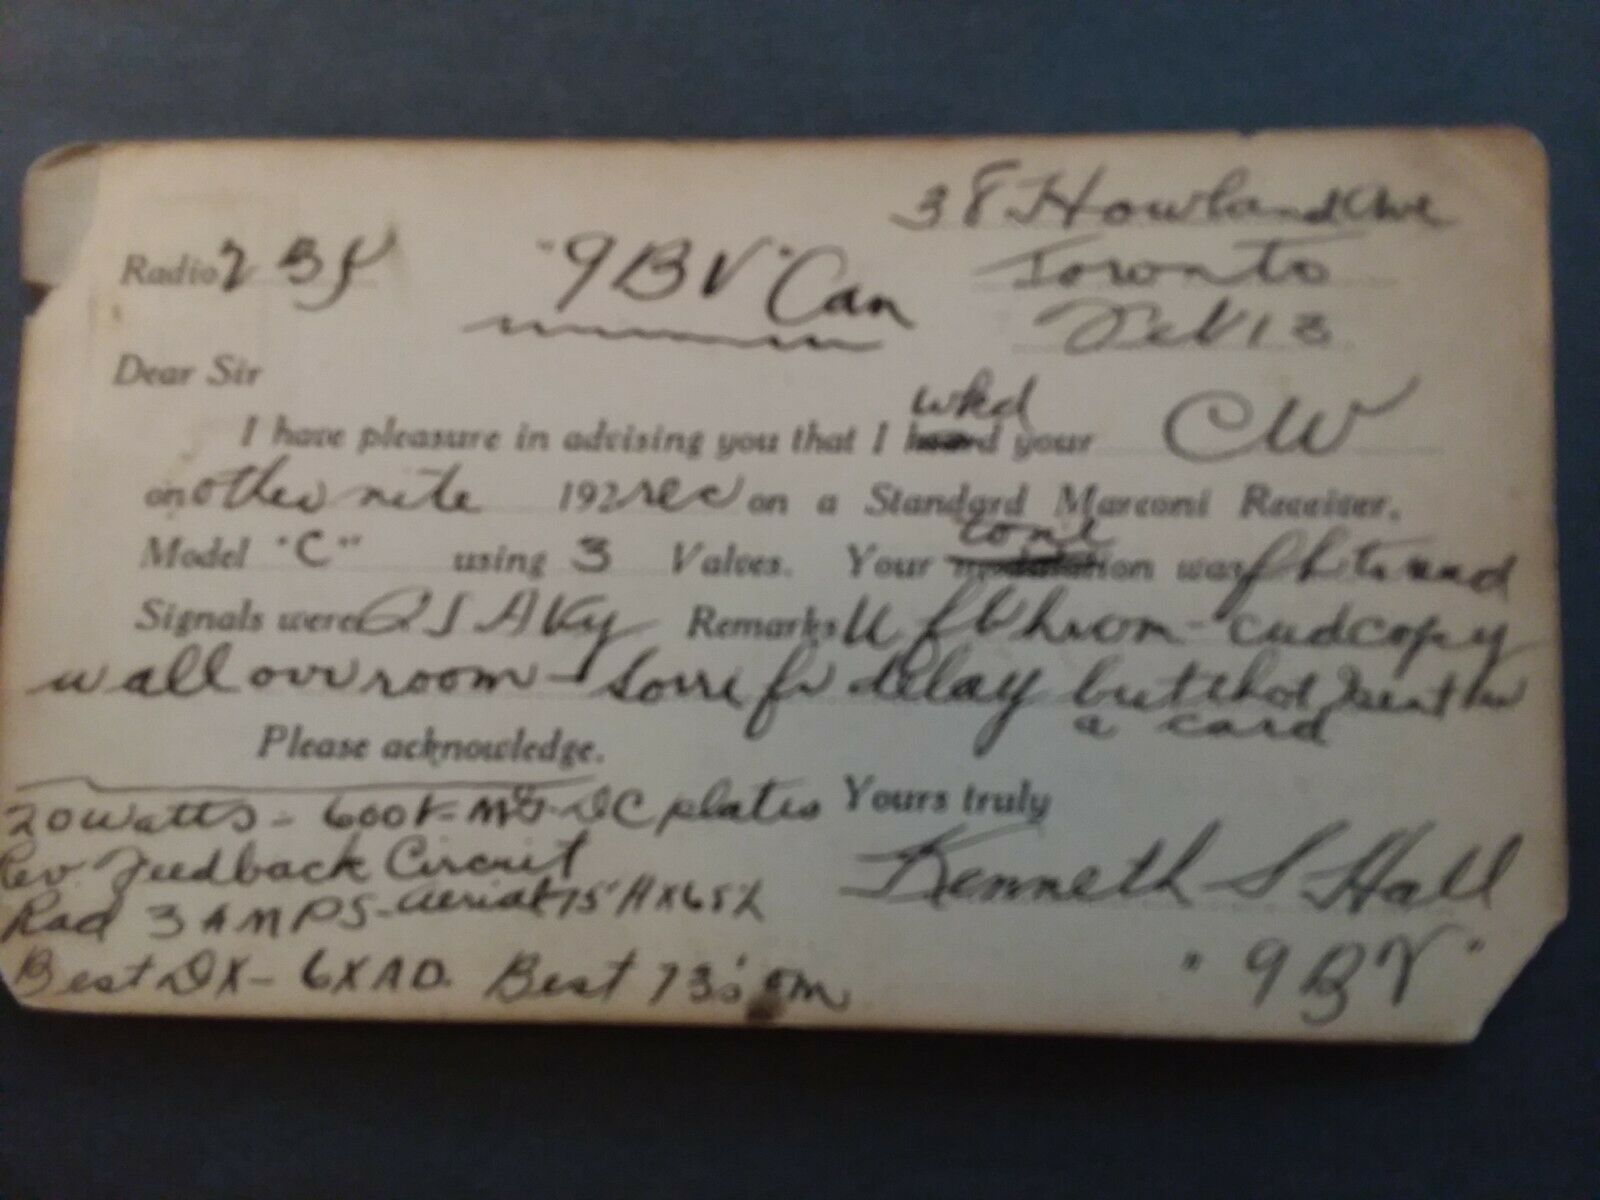 38 Howland Ave
Radio 2 "9BV" Can Toronto
Feb 13
Dear Sir
wkd
I have pleasure in advising you that I heard your CW
on other nite 192 rec on a Standard Marconi Receiver,
tone
Model "C" using 3 Valves. Your modulation was fb
Signals were QSA Vy Remarks U fb hr om - cud copy
u all over room - Sorri fr delay but thot I sent u
a card
Please acknowledge.
20 watts - 600V - MG - DC plates Yours truly
Rev. Feedback Circuit
Kenneth S Hall
Rad 3 AMPS - aerial 75' H X 65' L
Best DX - 6XAD. Best 73's om "9BV"